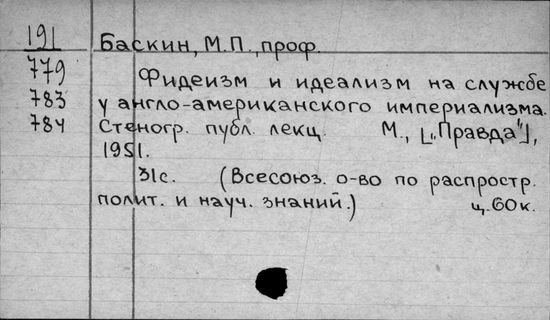 191 Баскин, М.П., проф.
779 Фидеизм и идеализм на службе
783 у англо-американского империализма.
784 Стеногр. публ. лекц. М., [„Правда"],
1951.
31с. (Всесоюз. о-во по распростр.
полит. и науч. знаний.) ц. 60к.